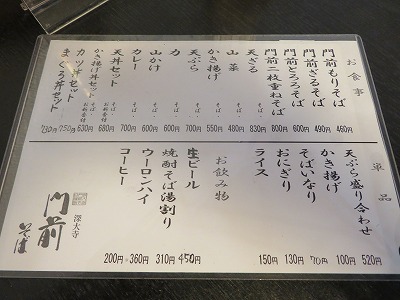 お食事
門前もりそば 460円
門前ざるそば 490円
門前とろろそば 600円
門前二枚重ねそば 800円
天ざる 830円
山菜 そば・ 480円
かき揚げ そば・ 550円
天ぷら そば・ 700円
力 そば・
山かけ そば・ 600円
カレー そば・ 600円
天丼セット そば・ 700円
かき揚げ丼セット そば・お新香付 680円
カツ丼セット そば・お新香付 630円
まぐろ丼セット 750円 730円
単品
天ぷら盛り合わせ 520円
かき揚げ 100円
そばいなり 70円
おにぎり 130円
ライス 150円
お飲み物
生ビール 450円
焼酎そば湯割り 310円
ウーロンハイ 360円
コーヒー 200円
深大寺
門前
そば